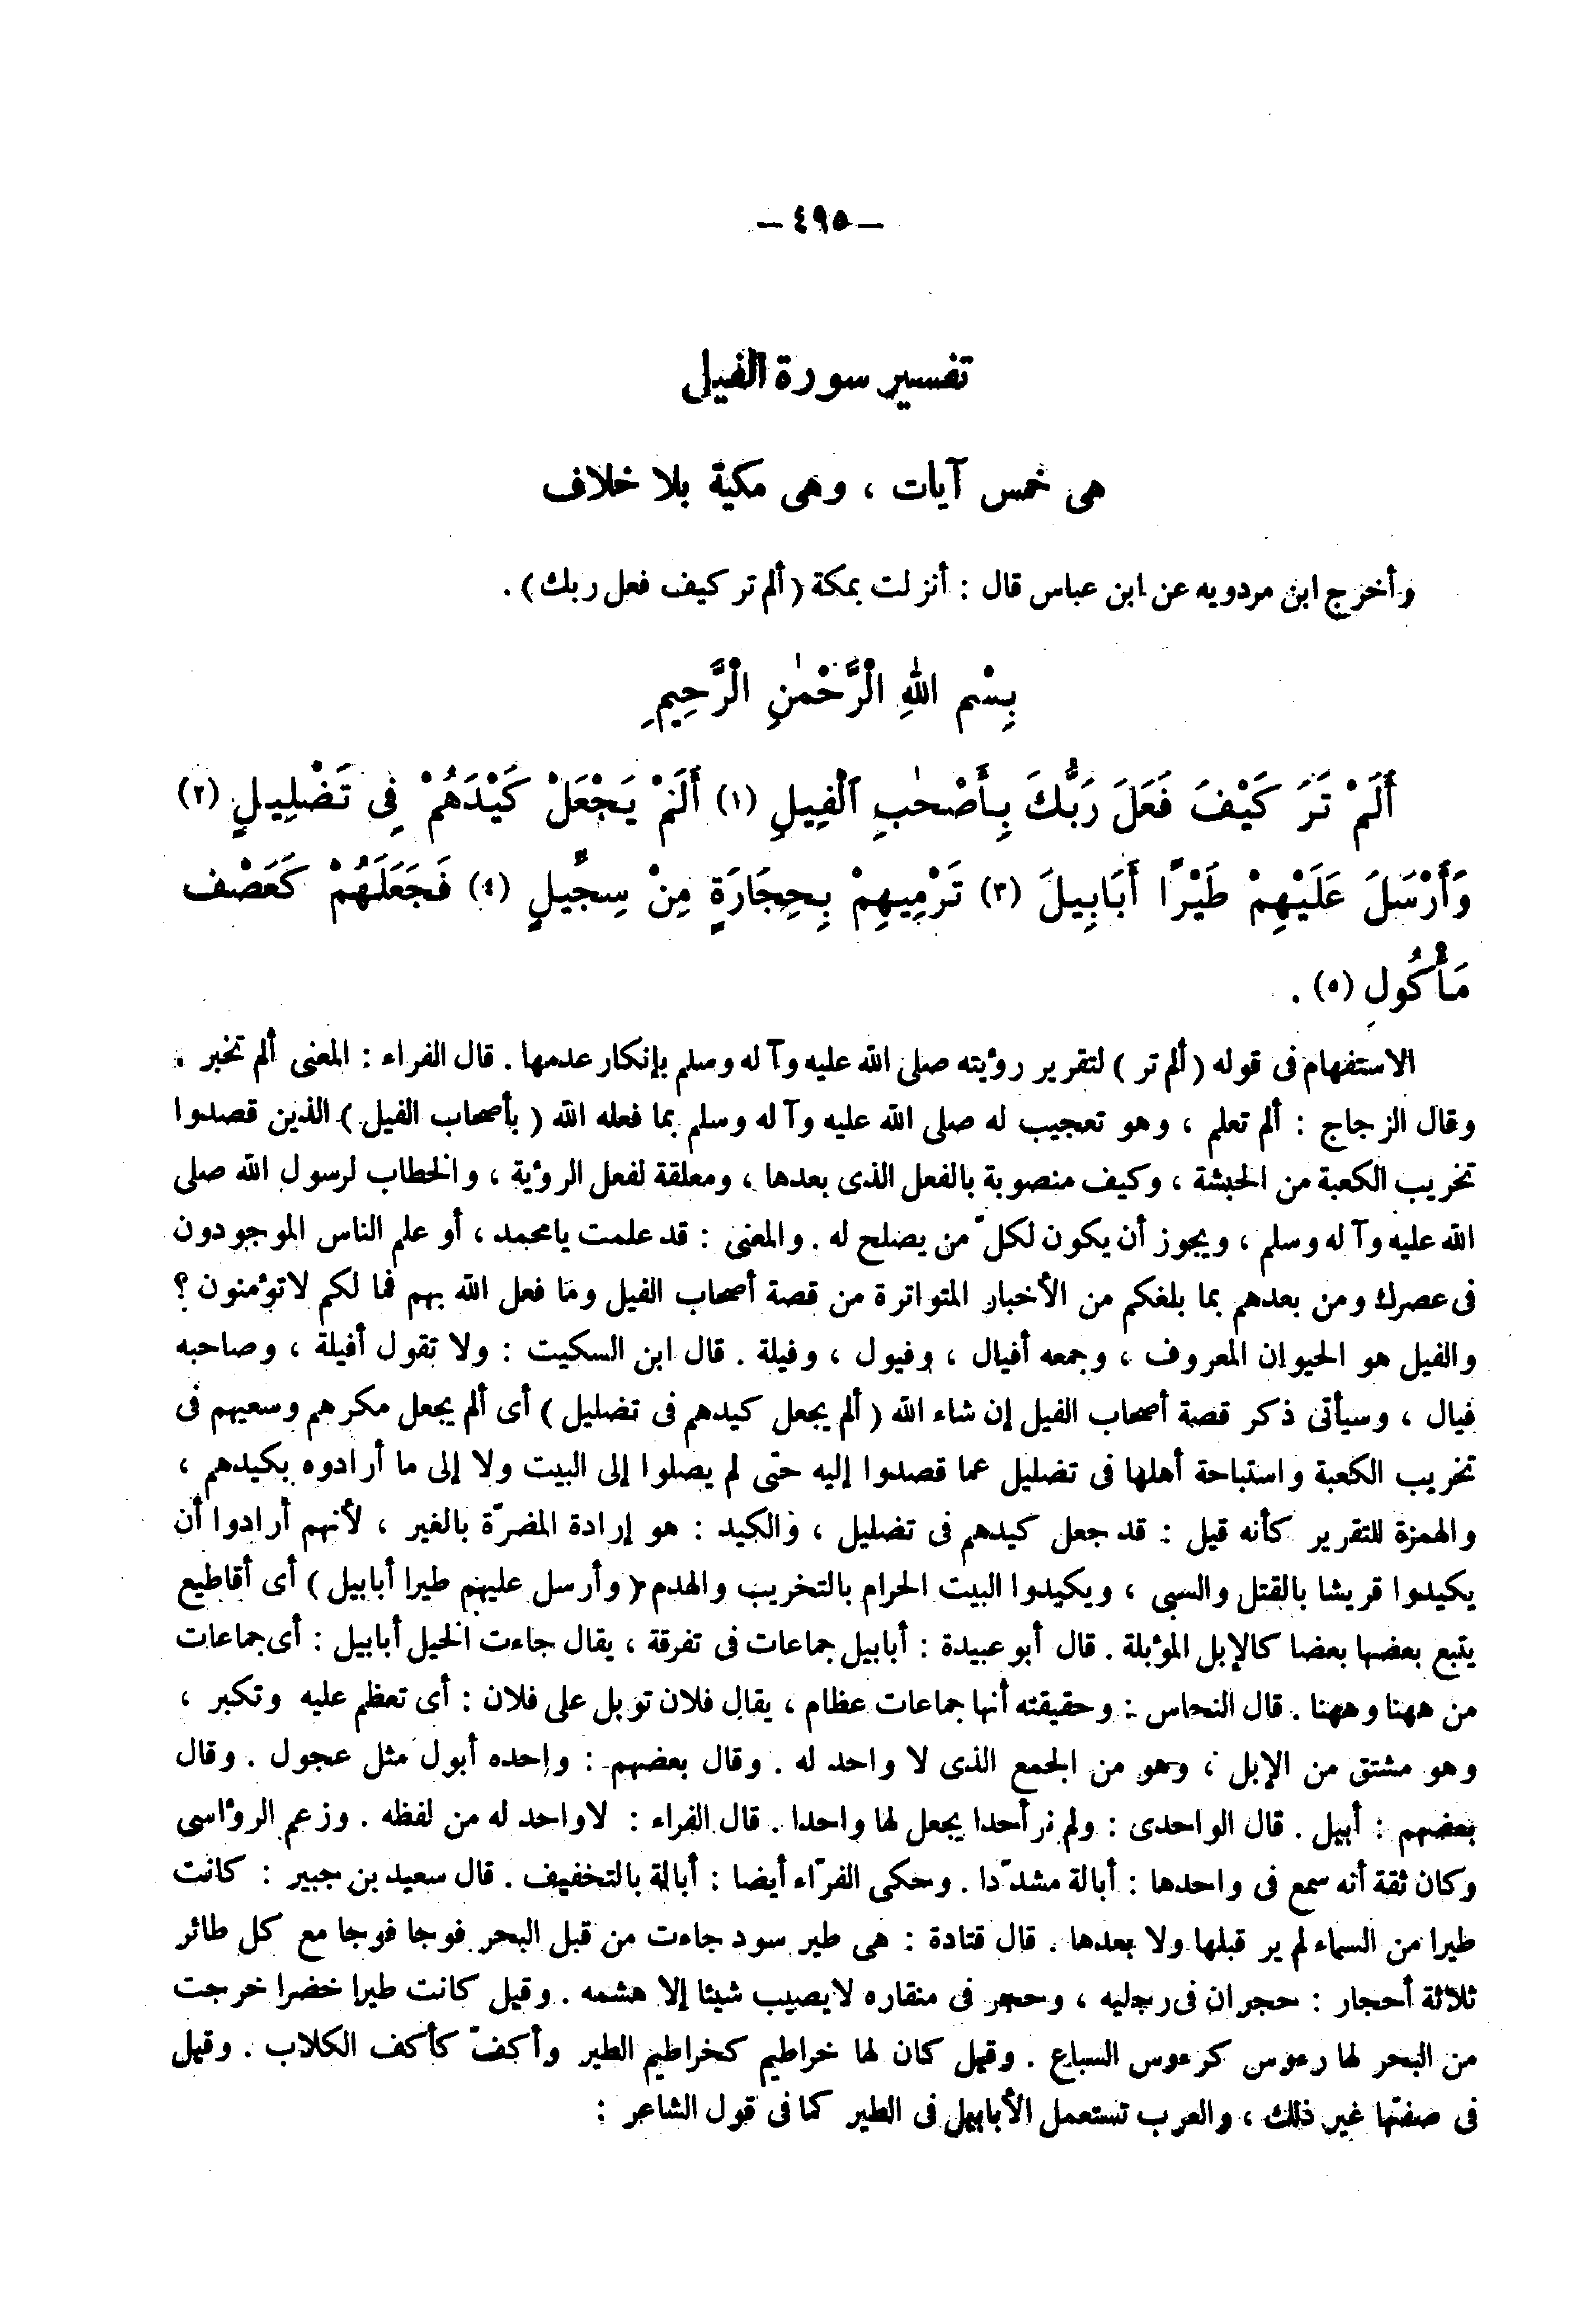 — ٤٩٥ —
تفسير سورة الفيل
هى خمس آيات ، وهى مكية بلا خلاف
وأخرج ابن مردويه عن ابن عباس قال : أنزلت بمكة ( ألم تر كيف فعل ربك ) .
بِسْمِ اللهِ الْرَّحْمٰنِ الْرَّحِيمِ
أَلَمْ تَرَ كَيْفَ فَعَلَ رَبُّكَ بِأَصْحٰبِ اَلْفِيلِ (١) أَلَمْ يَجْعَلْ كَيْدَهُمْ فِى تَضْلِيلٍ (٢)
وَأَرْسَلَ عَلَيْهِمْ طَيْرًا أَبَابِيلَ (٣) تَرْمِيهِمْ بِحِجَارَةٍ مِنْ سِجِّيلٍ (٤) فَجَعَلَهُمْ كَعَصْفٍ
مَأْكُولٍ (٥) .
الاستفهام فى قوله ( ألم تر ) لتقرير رؤيته صلى الله عليه وآله وسلم بإنكار عدمها . قال الفراء : المعنى ألم تخبر .
وقال الزجاج : ألم تعلم ، وهو تعجيب له صلى الله عليه وآله وسلم بما فعله الله ( بأصحاب الفيل ) الذين قصدوا
تخريب الكعبة من الحبشة ، وكيف منصوبة بالفعل الذى بعدها ، ومعلقة لفعل الرؤية ، والخطاب لرسول الله صلى
الله عليه وآله وسلم ، ويجوز أن يكون لكلّ من يصلح له . والمعنى : قد علمت يامحمد ، أو علم الناس الموجودون
فى عصرك ومن بعدهم بما بلغكم من الأخبار المتواترة من قصة أصحاب الفيل وما فعل الله بهم فما لكم لاتؤمنون ؟
والفيل هو الحيوان المعروف ، وجمعه أفيال ، وفيول ، وفيلة . قال ابن السكيت : ولا تقول أفيلة ، وصاحبه
فيال ، وسيأتى ذكر قصة أصحاب الفيل إن شاء الله ( ألم يجعل كيدهم فى تضليل ) أى ألم يجعل مكرهم وسعيهم فى
تخريب الكعبة واستباحة أهلها فى تضليل عما قصدوا إليه حتى لم يصلوا إلى البيت ولا إلى ما أرادوه بكيدهم ،
والهمزة للتقرير كأنه قيل : قد جعل كيدهم فى تضليل ، والكيد : هو إرادة المضرّة بالغير ، لأنهم أرادوا أن
يكيدوا قريشا بالقتل والسبى ، ويكيدوا البيت الحرام بالتخريب والهدم ( وأرسل عليهم طيرا أبابيل ) أى أقاطيع
يتبع بعضها بعضا كالإبل المؤبلة . قال أبو عبيدة : أبابيل جماعات فى تفرقة ، يقال جاءت الخيل أبابيل : أى جماعات
من ههنا وههنا . قال النحاس : وحقيقته أنها جماعات عظام ، يقال فلان توبل على فلان : أى تعظم عليه وتكبر ،
وهو مشتق من الإبل ، وهو من الجمع الذى لا واحد له . وقال بعضهم : واحده أبول مثل عجول . وقال
بعضهم : أبيل . قال الواحدى : ولم نر أحدا يجعل لها واحدا . قال الفراء : لاواحد له من لفظه . وزعم الرؤاسى
وكان ثقة أنه سمع فى واحدها : أبالة مشدّدا . وحكى الفرّاء أيضا : أبالة بالتخفيف . قال سعيد بن جبير : كانت
طيرا من السماء لم ير قبلها ولا بعدها . قال قتادة : هى طير سود جاءت من قبل البحر فوجا فوجا مع كل طائر
ثلاثة أحجار : حجران فى رجليه ، وحجر فى منقاره لايصيب شيئا إلا هشمه . وقيل كانت طيرا خضرا خرجت
من البحر لها رءوس كرءوس السباع . وقيل كان لها خراطيم كخراطيم الطير وأكفّ كأكف الكلاب . وقيل
فى صفتها غير ذلك ، والعرب تستعمل الأبابيل فى الطير كما فى قول الشاعر :